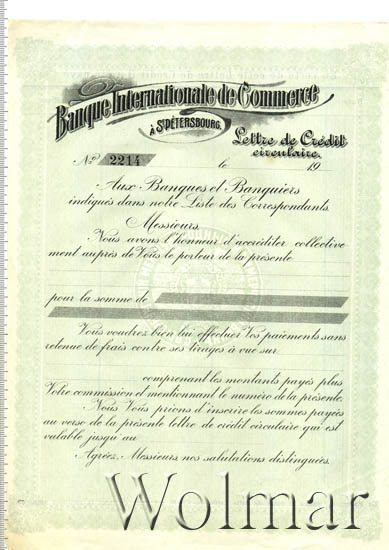 Banque Internationale de Commerce
à St. PÉTERSBOURG.
Lettre de Crédit
circulaire.
No 2214 le 19
Aux Banques et Banquiers
indiqués dans notre Liste des Correspondants.
Messieurs,
Nous avons l'honneur d'accréditer collective
ment auprès de Vous le porteur de la présente
pour la somme de
Vous voudrez bien lui effectuer Vos paiements sans
retenue de frais contre ses tirages à vue sur
comprenant les montants payés plus
Votre commission et mentionnant le numéro de la présente.
Nous Vous prions d'inscrire les sommes payées
au verso de la présente lettre de crédit circulaire qui est
valable jusqu'au
Agréez, Messieurs, nos salutations distinguées.
Wolmar